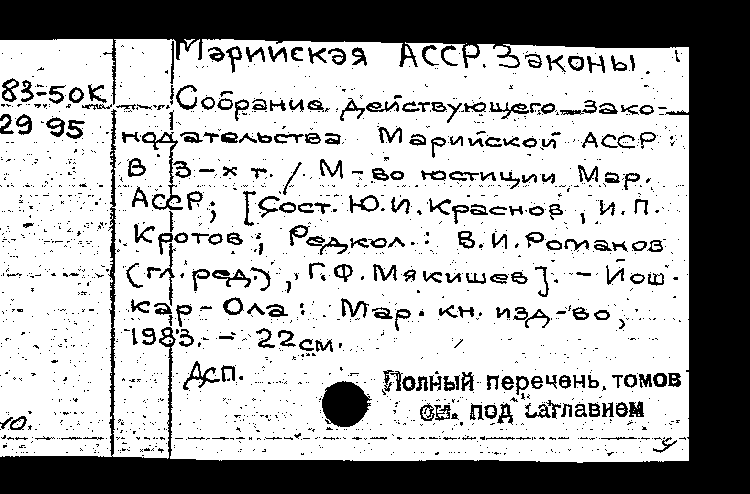 Марийская АССР. Законы.
83-50К
29 95
Собрание действующего зако-
нодательства Марийской АССР:
В 3-х т. / М-во юстиции Мар.
АССР; [Сост. Ю.И.Краснов, И.П.
Кротов; Редкол.: В.И.Романов
(гл.ред.), Г.Ф.Мякишев]. - Йош-
кар-Ола: Мар. кн. изд-во,
1983. - 22см.
Дсп.
Полный перечень томов
см. под заглавием